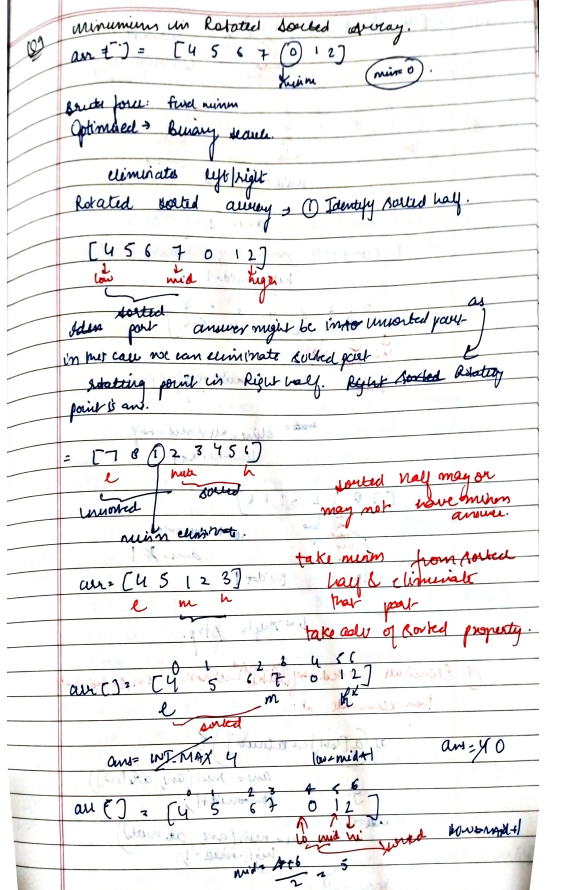 Q9
Minimum in Rotated Sorted Array.
arr [ ] = [4 5 6 7 0 1 2]
minm
min = 0
Brute force: find minm
Optimised → Binary search.
eliminate left/right
Rotated sorted array → ① Identify sorted half.
[4 5 6 7 0 1 2]
low mid high
sorted
part answer might be into unsorted part as
in this case we can eliminate sorted part
rotating point is in Right half. Right sorted Rotating
point is ans.
= [7 8 1 2 3 4 5 6]
l mid h
unsorted sorted
minm eliminate.
sorted half may or
may not have minm
answer.
take minm from sorted
half & eliminate
that part
take adv of sorted property.
arr = [4 5 1 2 3]
l m h
0 1 2 3 4 5 6
arr [ ] = [4 5 6 7 0 1 2]
l m h
sorted
ans = INT_MAX 4
low = mid+1
ans = 4 0
0 1 2 3 4 5 6
arr [ ] = [4 5 6 7 0 1 2]
lo mid hi
sorted
low = mid+1
mid = 4+6
2
= 5